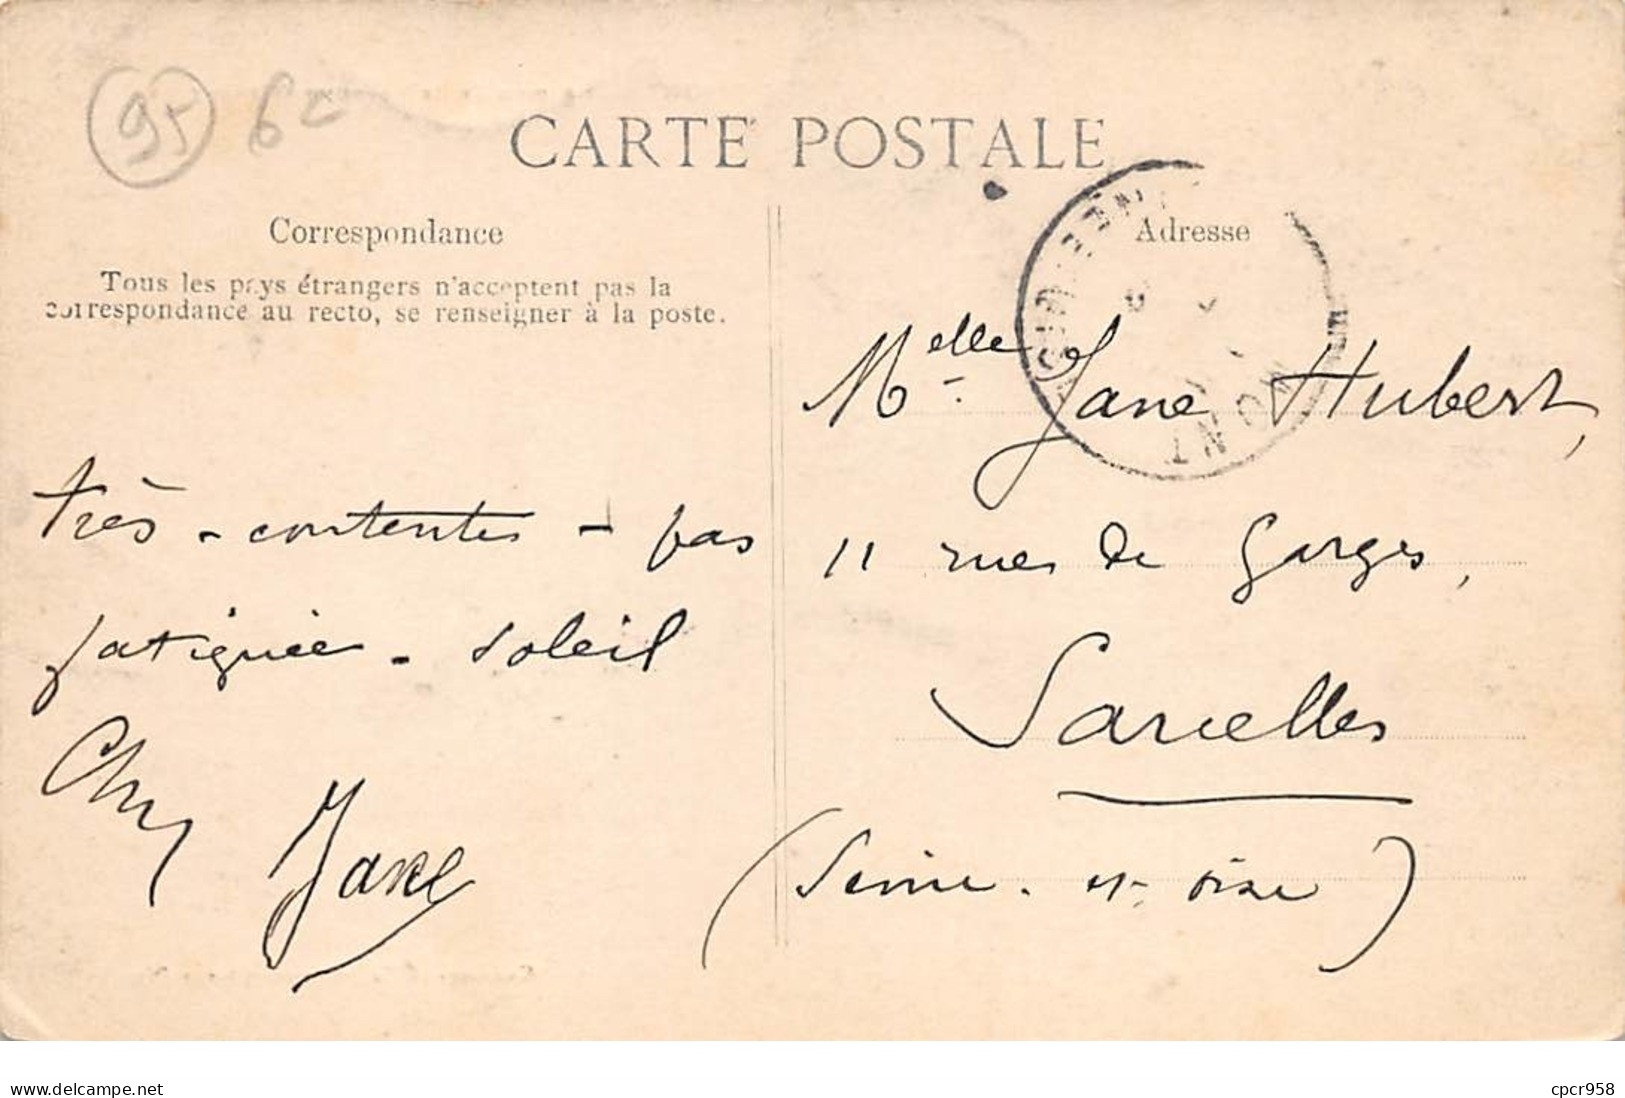 95 6€
CARTE POSTALE
Correspondance
Tous les pays étrangers n'acceptent pas la
correspondance au recto, se renseigner à la poste.
Adresse
Melle Jane Hubert,
11 rue de Garges,
Sarcelles
(Seine-et-Oise)
très - contentes - pas
fatiguée - soleil
Jane
www.delcampe.net
cpcr958